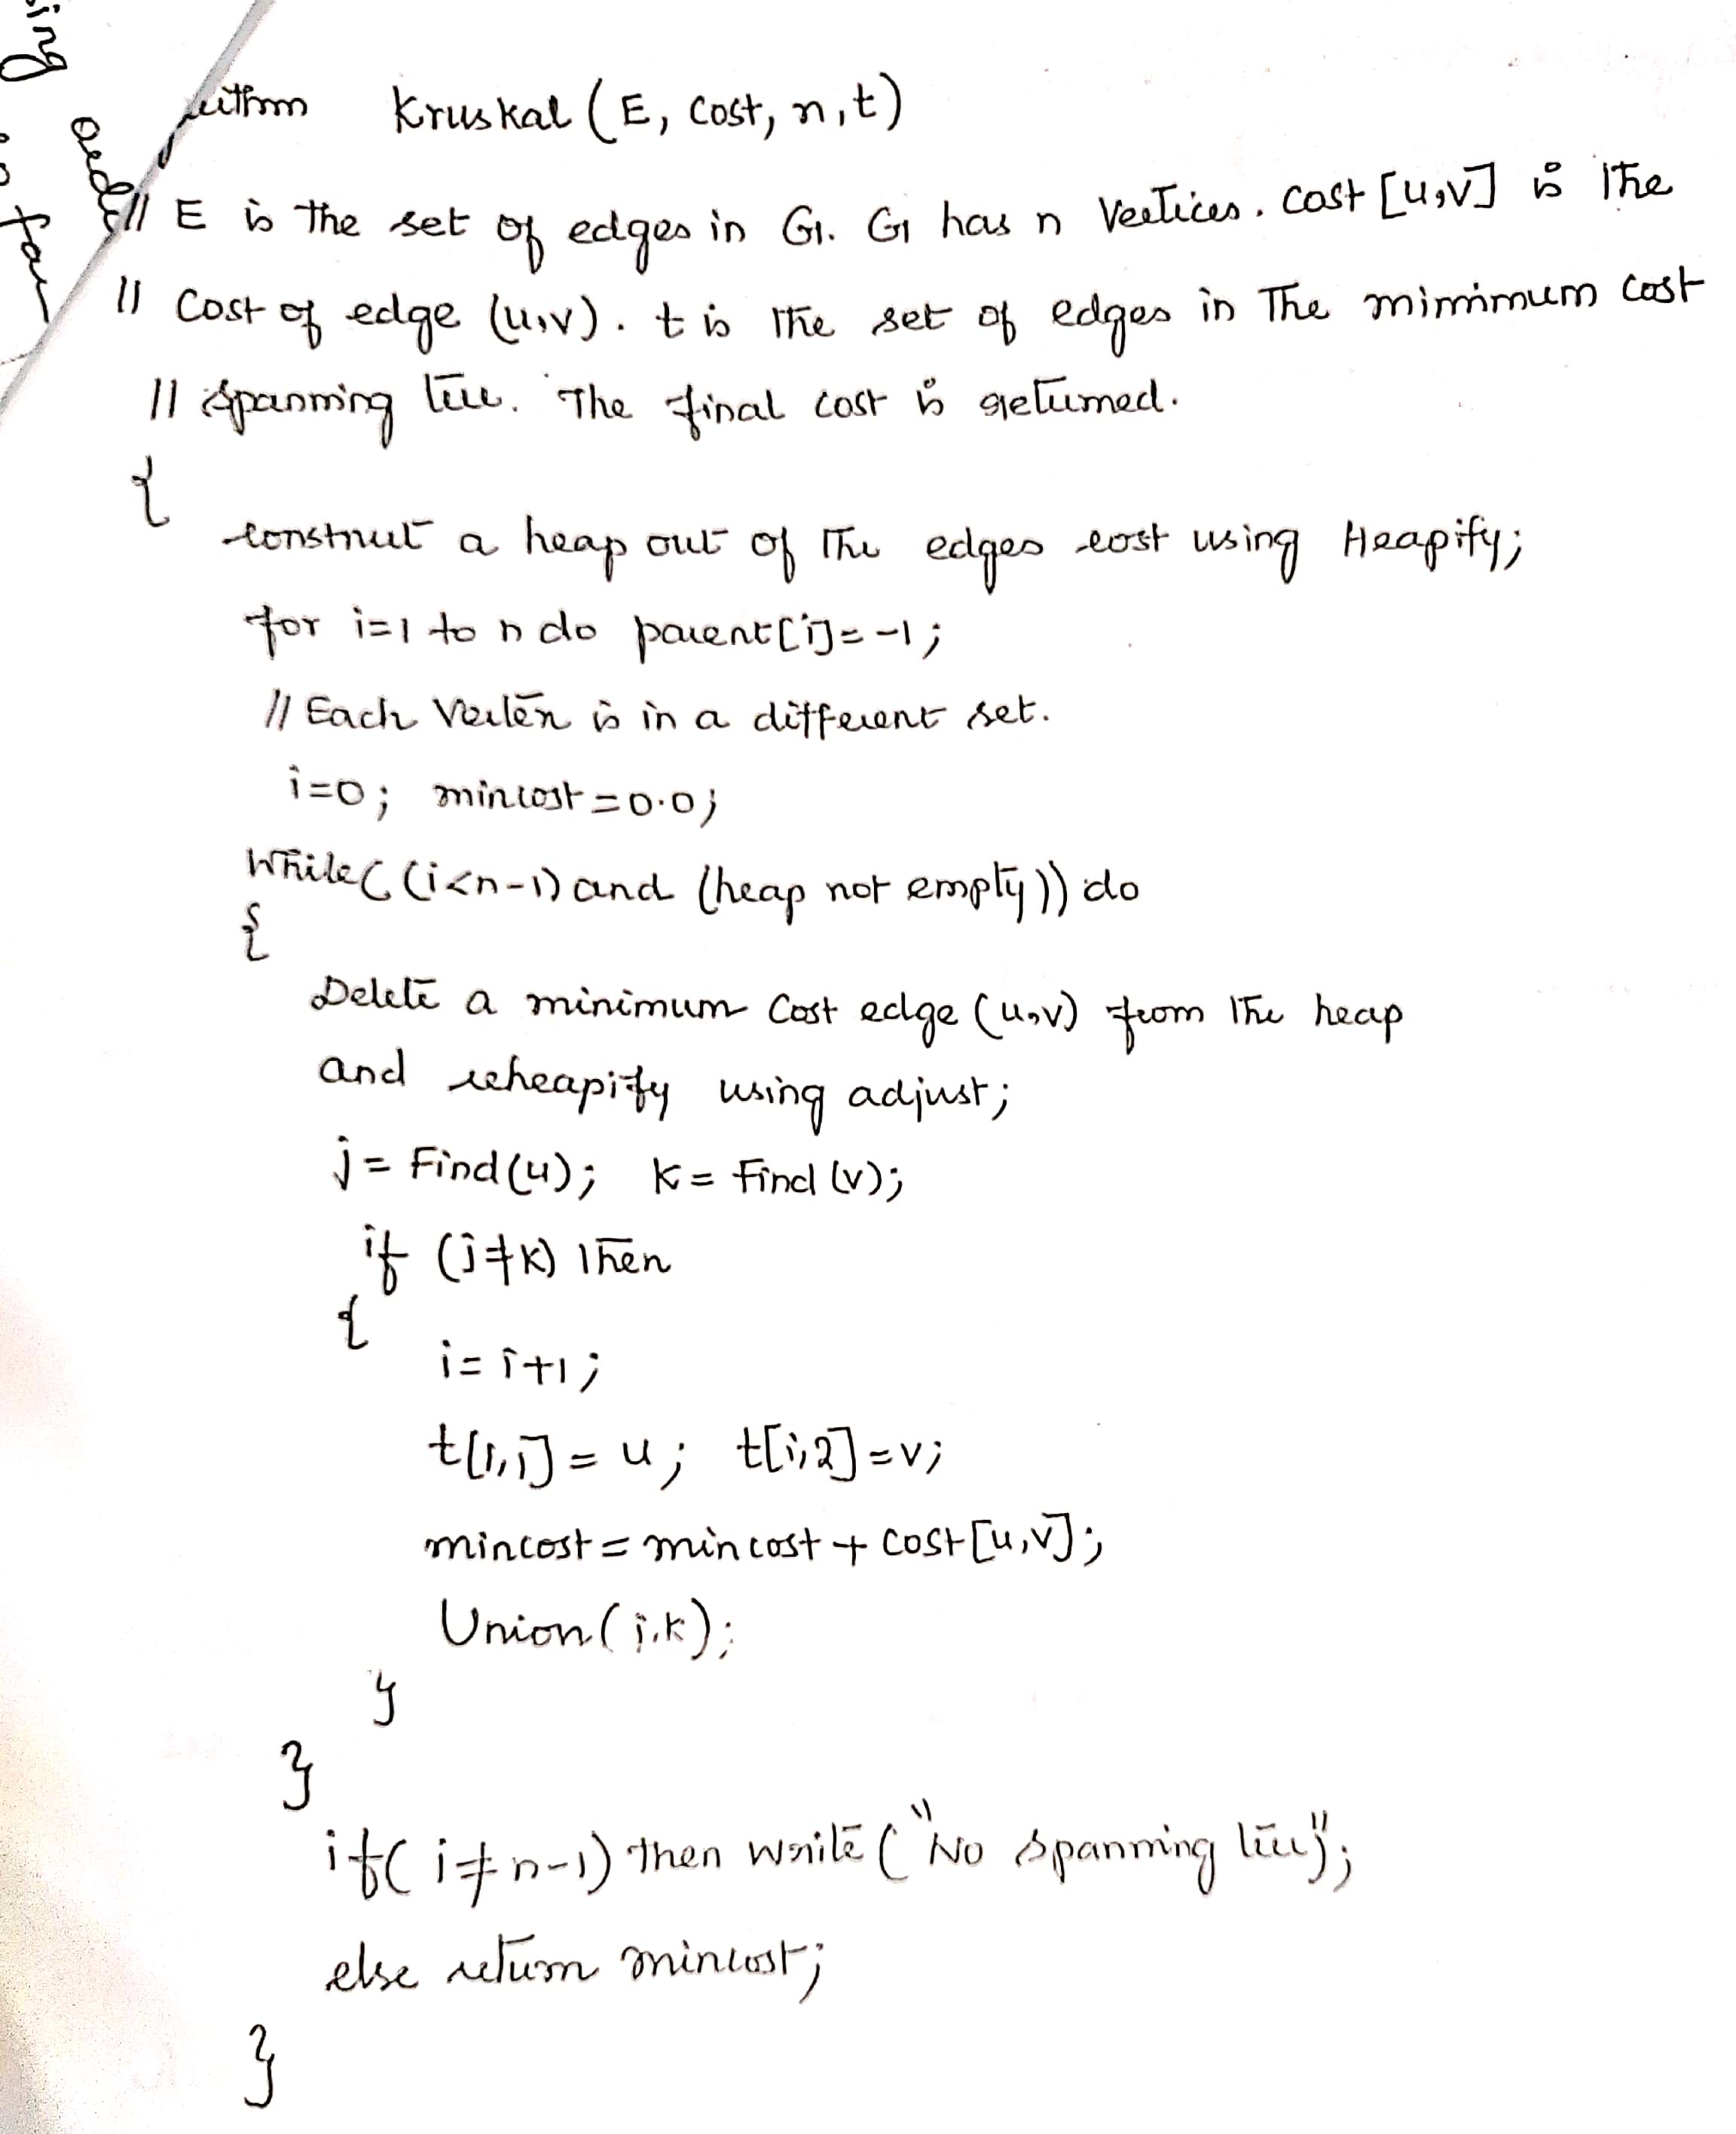 Kruskal (E, cost, n, t)
// E is the set of edges in G. G has n vertices. cost [u,v] is the
// cost of edge (u,v). t is the set of edges in the minimum cost
// spanning tree. The final cost is returned.
{
construct a heap out of the edges cost using Heapify;
for i=1 to n do parent[i]=-1;
// Each vertex is in a different set.
i=0; mincost=0.0;
While((i<n-1) and (heap not empty)) do
{
Delete a minimum cost edge (u,v) from the heap
and reheapify using adjust;
j = Find(u); k = Find(v);
if (j≠k) then
{
i=i+1;
t[i,1] = u; t[i,2]=v;
mincost = mincost + cost[u,v];
Union(j,k);
}
}
if( i≠n-1) then write ("No spanning tree");
else return mincost;
}